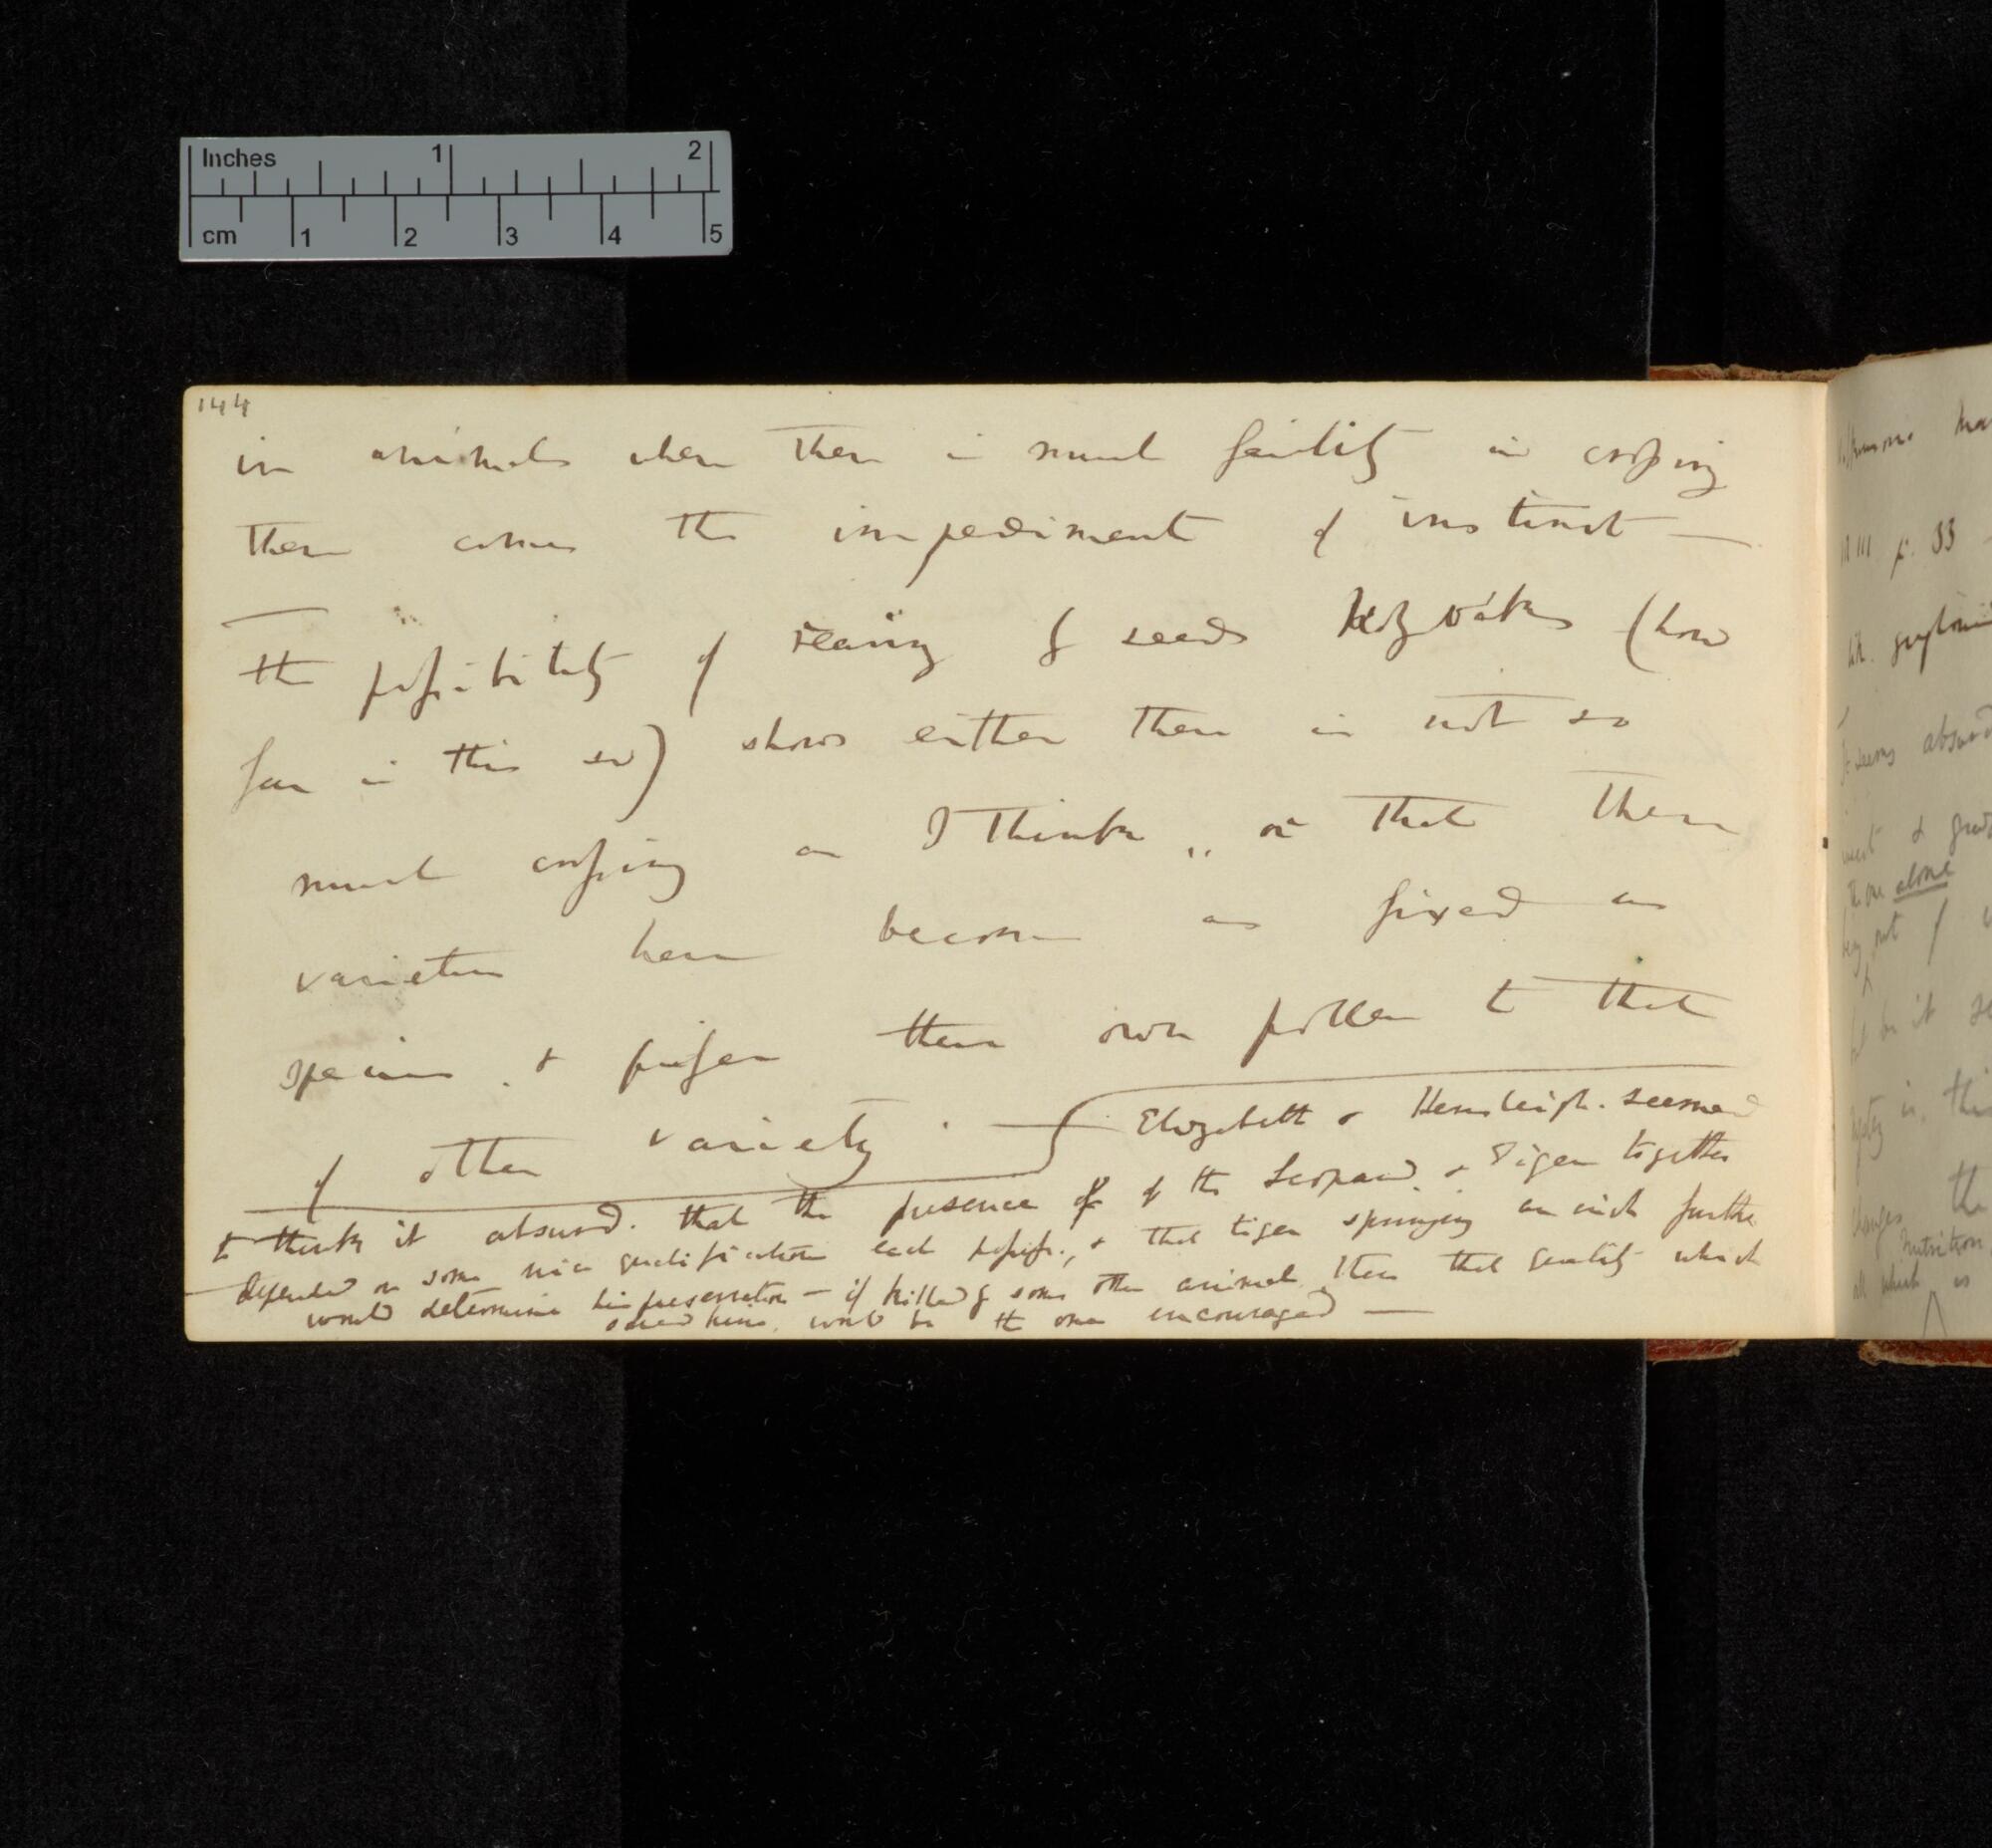 Inches 1 2
cm 1 2 3 4 5
144
in animals where there is much facility in crossing
there comes the impediment of instinct —
the possibility of rearing of seeds (how
far is this so) shows either there is not so
much crossing as I think, or that these
varieties have become as fixed as
species, & prefer their own pollen to that
of other variety. — Elizabeth & Hensleigh. seemed
to think it absurd. that the presence of of the Leopard. & Tiger together
depended on some nice qualification each possess., & that tiger springing an inch further
would determine his preservation — if killed by some other animal, then that quality which
saved him. would be the one encouraged —
p. 83
absurd
alone
Nutrition
all which is